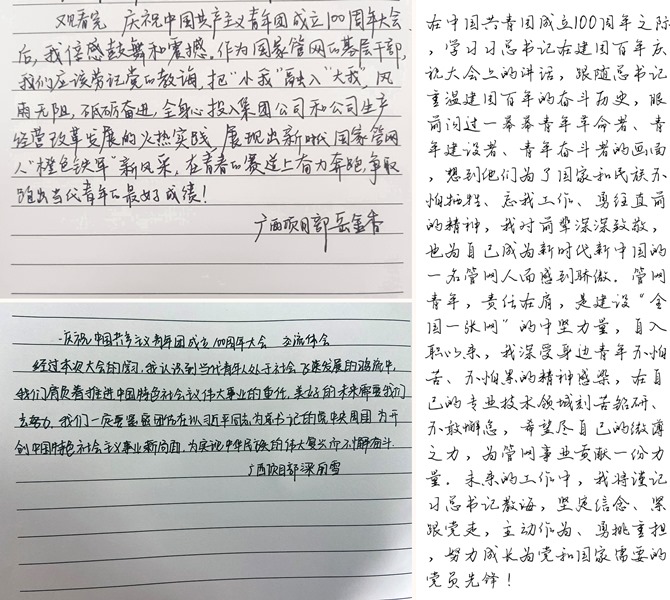 观看完 庆祝中国共产主义青年团成立100周年大会
后,我倍感鼓舞和震撼。作为国家管网的基层干部,
我们应该常记党的教诲,把“小我”融入“大我”,风
雨无阻,砥砺奋进,全身心投入集团公司和公司生产
经营改革发展的火热实践,展现出新时代国家管网
人“橙色铁军”新风采,在青春的赛道上奋力奔跑,争取
跑出当代青年的最好成绩!
广西项目部 岳金香
庆祝中国共产主义青年团成立100周年大会 交流体会
经过本次大会的学习,我认识到当代青年人处于社会飞速发展的洪流中,
我们肩负着推进中国特色社会主义伟大事业的重任,美好的未来需要我们
去努力,我们一定要紧密团结在以习近平同志为总书记的党中央周围,为开
创中国特色社会主义事业新局面,为实现中华民族的伟大复兴而不懈奋斗.
广西项目部 梁雪
在中国共青团成立100周年之际
,学习习总书记在建团百年庆
祝大会上的讲话,跟随总书记
重温建团百年的奋斗历史,眼
前闪过一幕幕青年革命者、青
年建设者、青年奋斗者的画面
,想到他们为了国家和民族不
怕牺牲、忘我工作、勇往直前
的精神,我对前辈深深致敬,
也为自己成为新时代新中国的
一名管网人而感到骄傲。管网
青年,责任在肩,是建设“全
国一张网”的中坚力量,自入
职以来,我深受身边青年不怕
苦、不怕累的精神感染,在自
己的专业技术领域刻苦钻研、
不敢懈怠,希望尽自己的微薄
之力,为管网事业贡献一份力
量。未来的工作中,我将谨记
习总书记教诲,坚定信念、紧
跟党走,主动作为、勇挑重担
,努力成长为党和国家需要的
党员先锋!